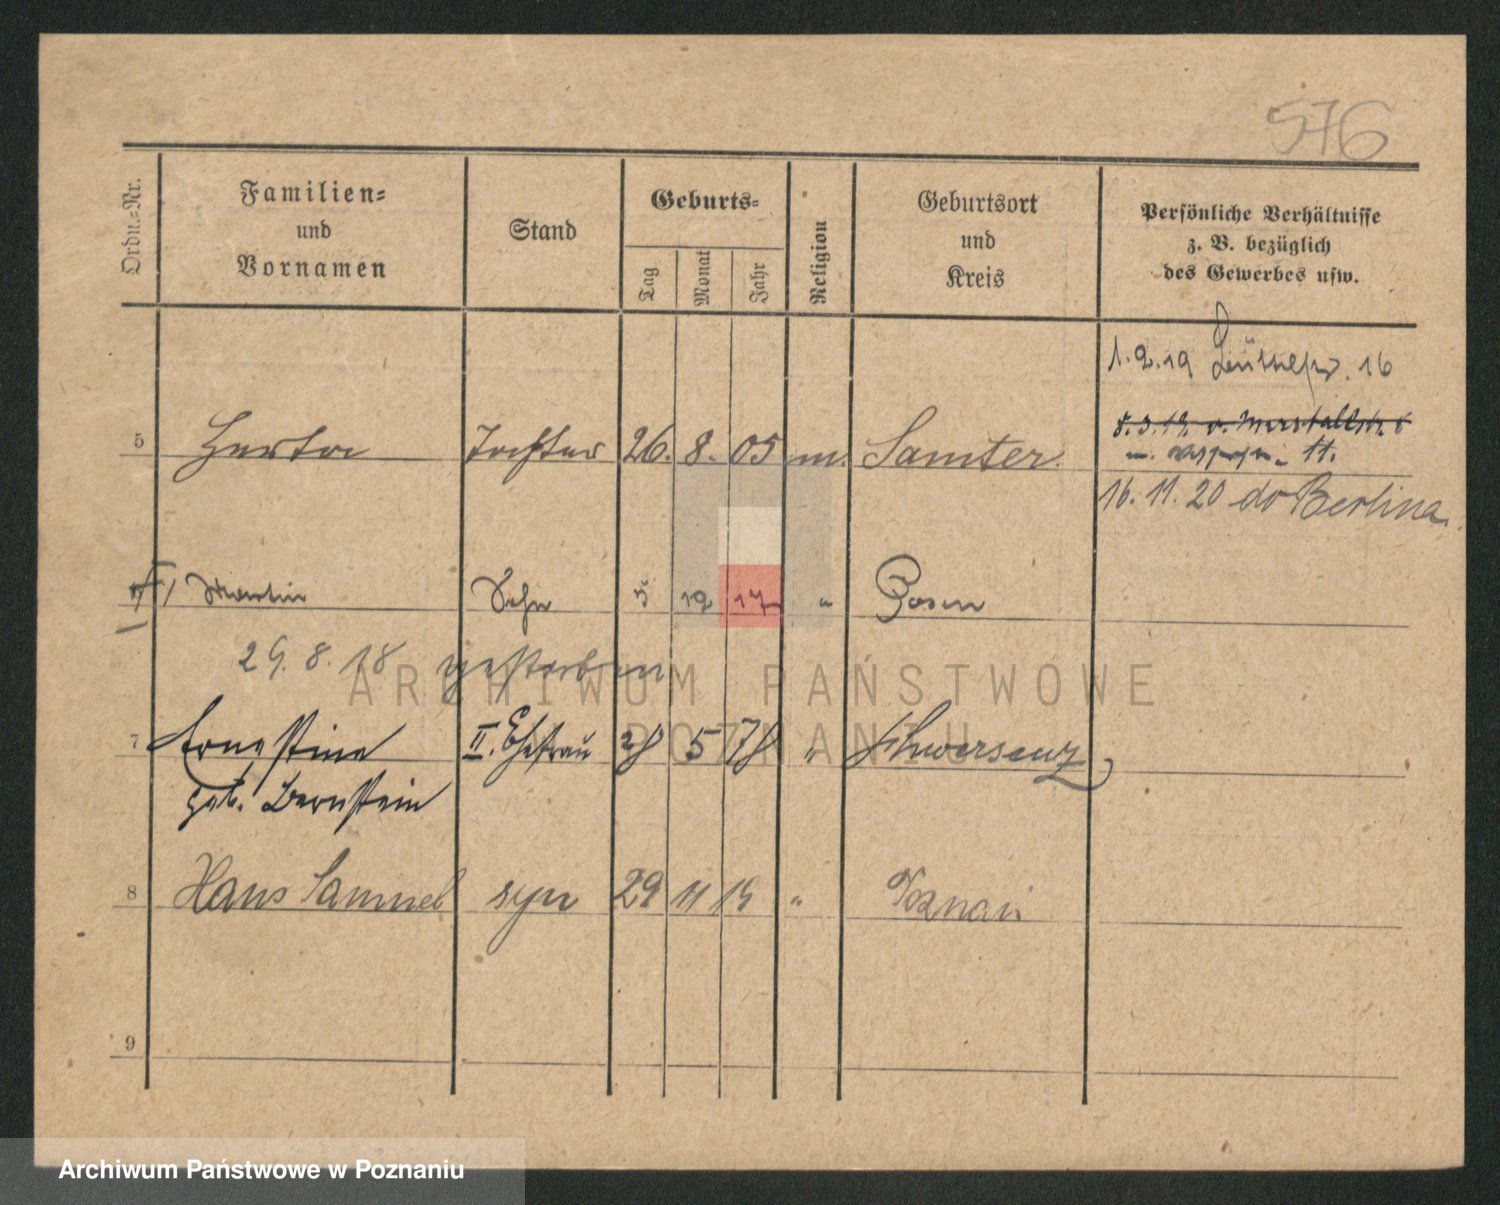 576
Ordn.-Nr.
Familien-
und
Vornamen
Stand
Geburts-
Tag
Monat
Jahr
Religion
Geburtsort
und
Kreis
Persönliche Verhältnisse
z. B. bezüglich
des Gewerbes usw.
1.2.19 16
5 Herta Tochter 26. 8. 05 m. Samter
11.
16. 11. 20 do Berlina
Martin Sohn 5 12 17 " Posen
29. 8. 18 gestorben
ARCHIWUM PAŃSTWOWE
POZNANIU
7 Ernestine II. Ehefrau 28 5 78 " Schwersenz
geb. Bernstein
8 Hans Samuel syn 29 11 19 " Poznań
9
Archiwum Państwowe w Poznaniu